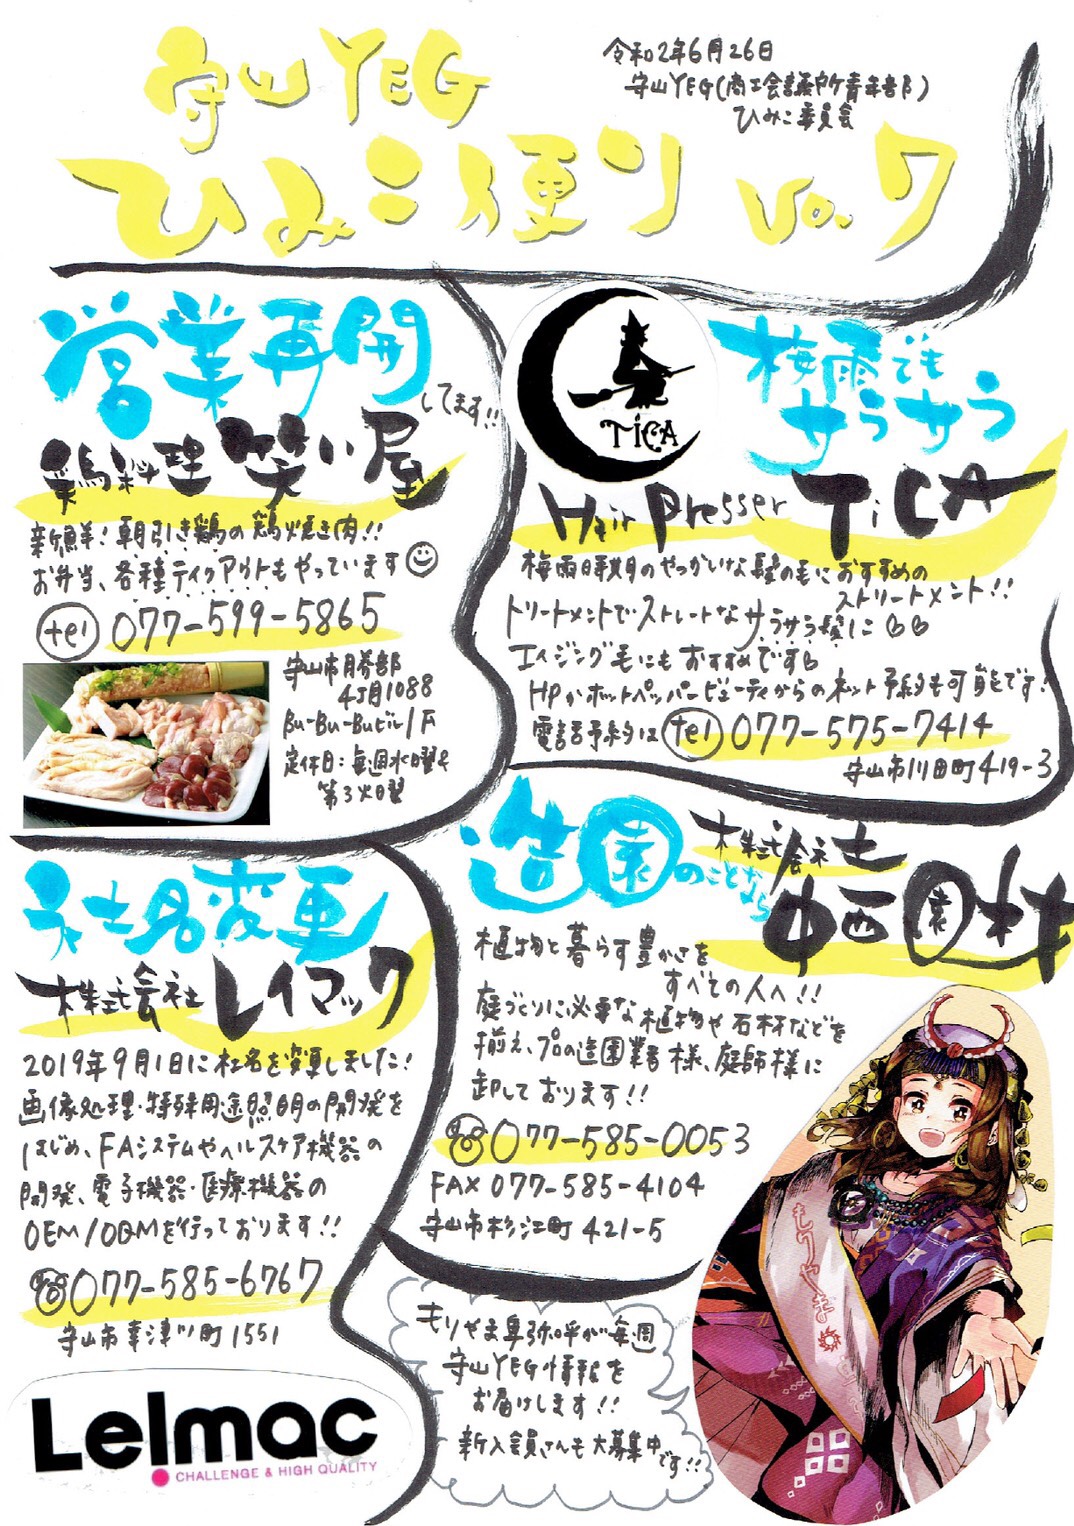 守山YEG
ひみこ便り Vo.7
令和2年6月26日
守山YEG(商工会議所青年部)
ひみこ委員会
営業再開
してます!!
鶏料理 笑い屋
新鮮!朝引き鶏の鶏焼き肉!!
お弁当、各種テイクアウトもやっています
tel 077-599-5865
守山市勝部
4丁目1088
Bu-Bu-Buビル1F
定休日:毎週水曜&
第3火曜
TiCA
梅雨でも
サラサラ
Hair Dresser TiCA
梅雨時期のやっかいな髪の毛におすすめの
ストリートメント!!
トリートメントでストレートなサラサラ髪に
エイジング毛にもおすすめです
HPかホットペッパービューティからのネット予約も可能です!
電話予約は tel 077-575-7414
守山市川田町419-3
社名変更
株式会社 レイマック
2019年9月1日に社名を変更しました!
画像処理・特殊用途照明の開発を
はじめ、FAシステムやヘルスケア機器の
開発、電子機器・医療機器の
OEM/ODMを行っております!!
077-585-6767
守山市幸津川町1551
Leimac
CHALLENGE & HIGH QUALITY
造園のことなら
株式会社
中西園材
植物と暮らす豊かさを
すべての人へ!!
庭づくりに必要な植物や石材などを
揃え、プロの造園業者様、庭師様に
卸しております!!
077-585-0053
FAX 077-585-4104
守山市杉江町421-5
もりやま卑弥呼が毎週
守山YEG情報を
お届けします!!
新入会員さんも大募集中
です!!
もりやま